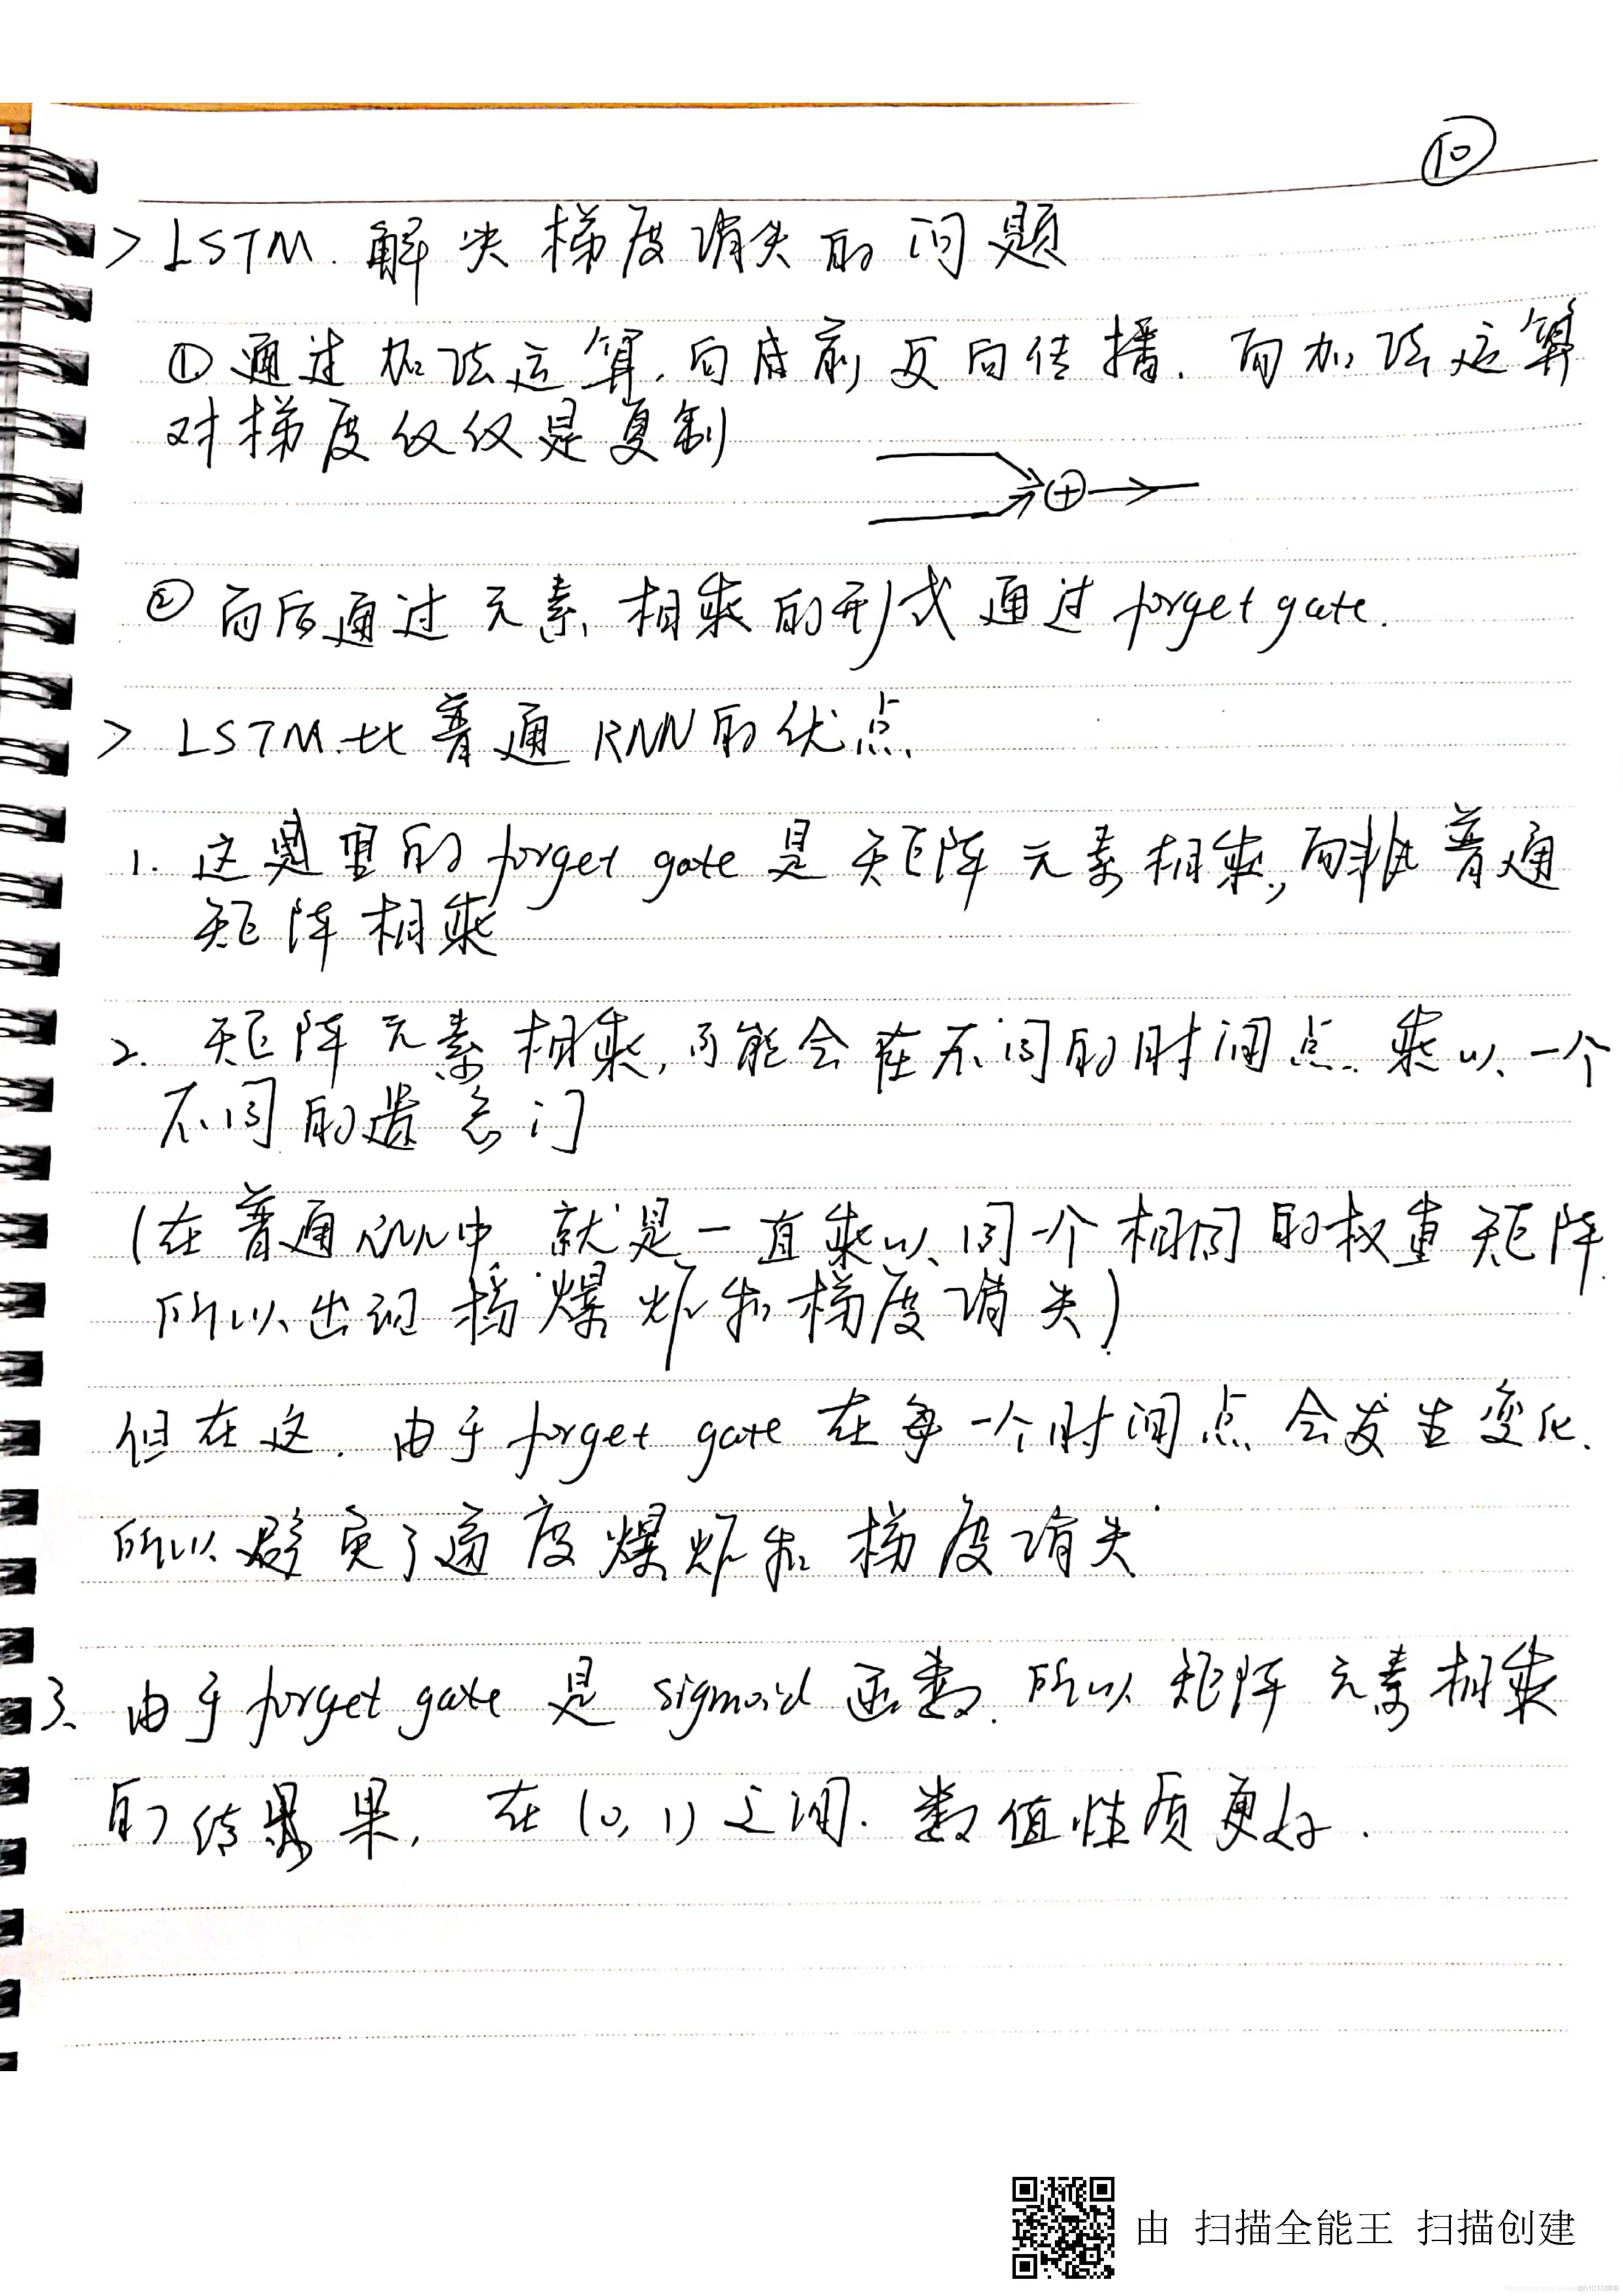 ⑩
> LSTM. 解决梯度消失的问题
①通过加法运算,向后前反向传播. 而加法运算
对梯度仅仅是复制
⊕
②而后通过元素相乘的形式通过forget gate.
> LSTM比普通RNN的优点
1. 这里的forget gate是矩阵元素相乘,而非普通
矩阵相乘
2. 矩阵元素相乘,可能会在不同的时间点.乘以一个
不同的遗忘门
(在普通RNN中 就是一直乘以同一个相同的权重矩阵
所以出现梯爆炸和梯度消失)
但在这. 由于forget gate在每一个时间点会发生变化.
所以避免了度爆炸和梯度消失
3. 由于forget gate是sigmoid函数. 所以矩阵元素相乘
的结果, 在(0,1)之间. 数值性质更好.
由 扫描全能王 扫描创建